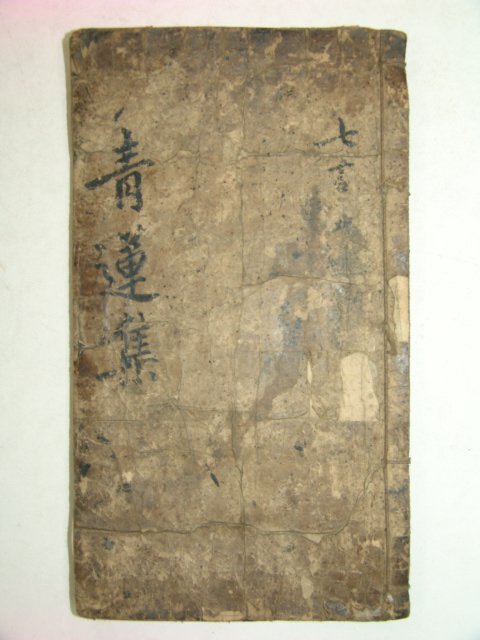 青蓮集
七言